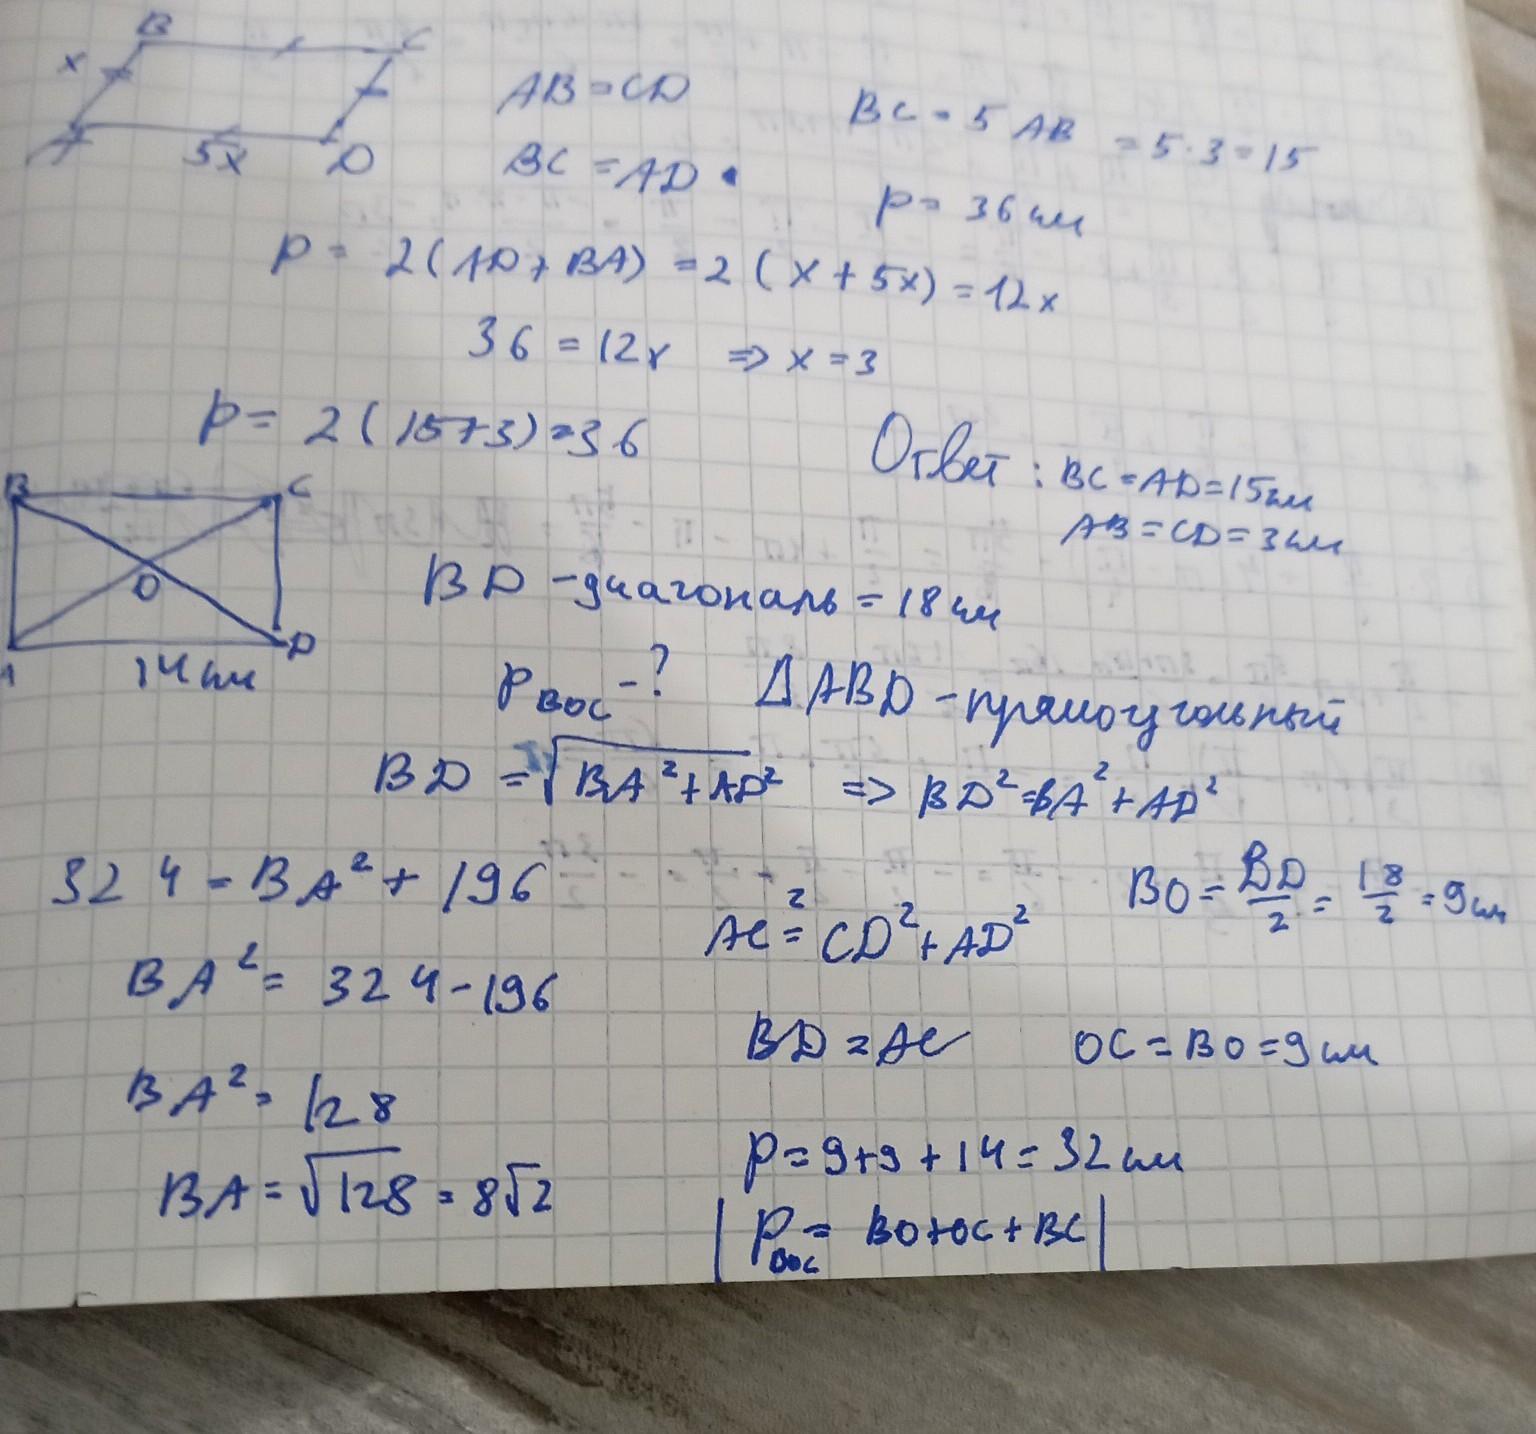 B C
x
A 5x D
AB = CD
BC = AD
BC = 5 AB = 5·3 = 15
P = 36 см
P = 2(AD + BA) = 2(x + 5x) = 12x
36 = 12x => x = 3
P = 2(15+3) = 36
Ответ: BC = AD = 15 см
AB = CD = 3 см
B C
O
A 14 см D
BD - диагональ = 18 см
P BOC - ? Δ ABD - прямоугольный
BD = √BA² + AD² => BD² = BA² + AD²
324 = BA² + 196
BA² = 324 - 196
BA² = 128
BA = √128 = 8√2
AC² = CD² + AD²
BO = BD/2 = 18/2 = 9 см
BD = AC OC = BO = 9 см
P = 9+9+14 = 32 см
| P BOC = BO + OC + BC |